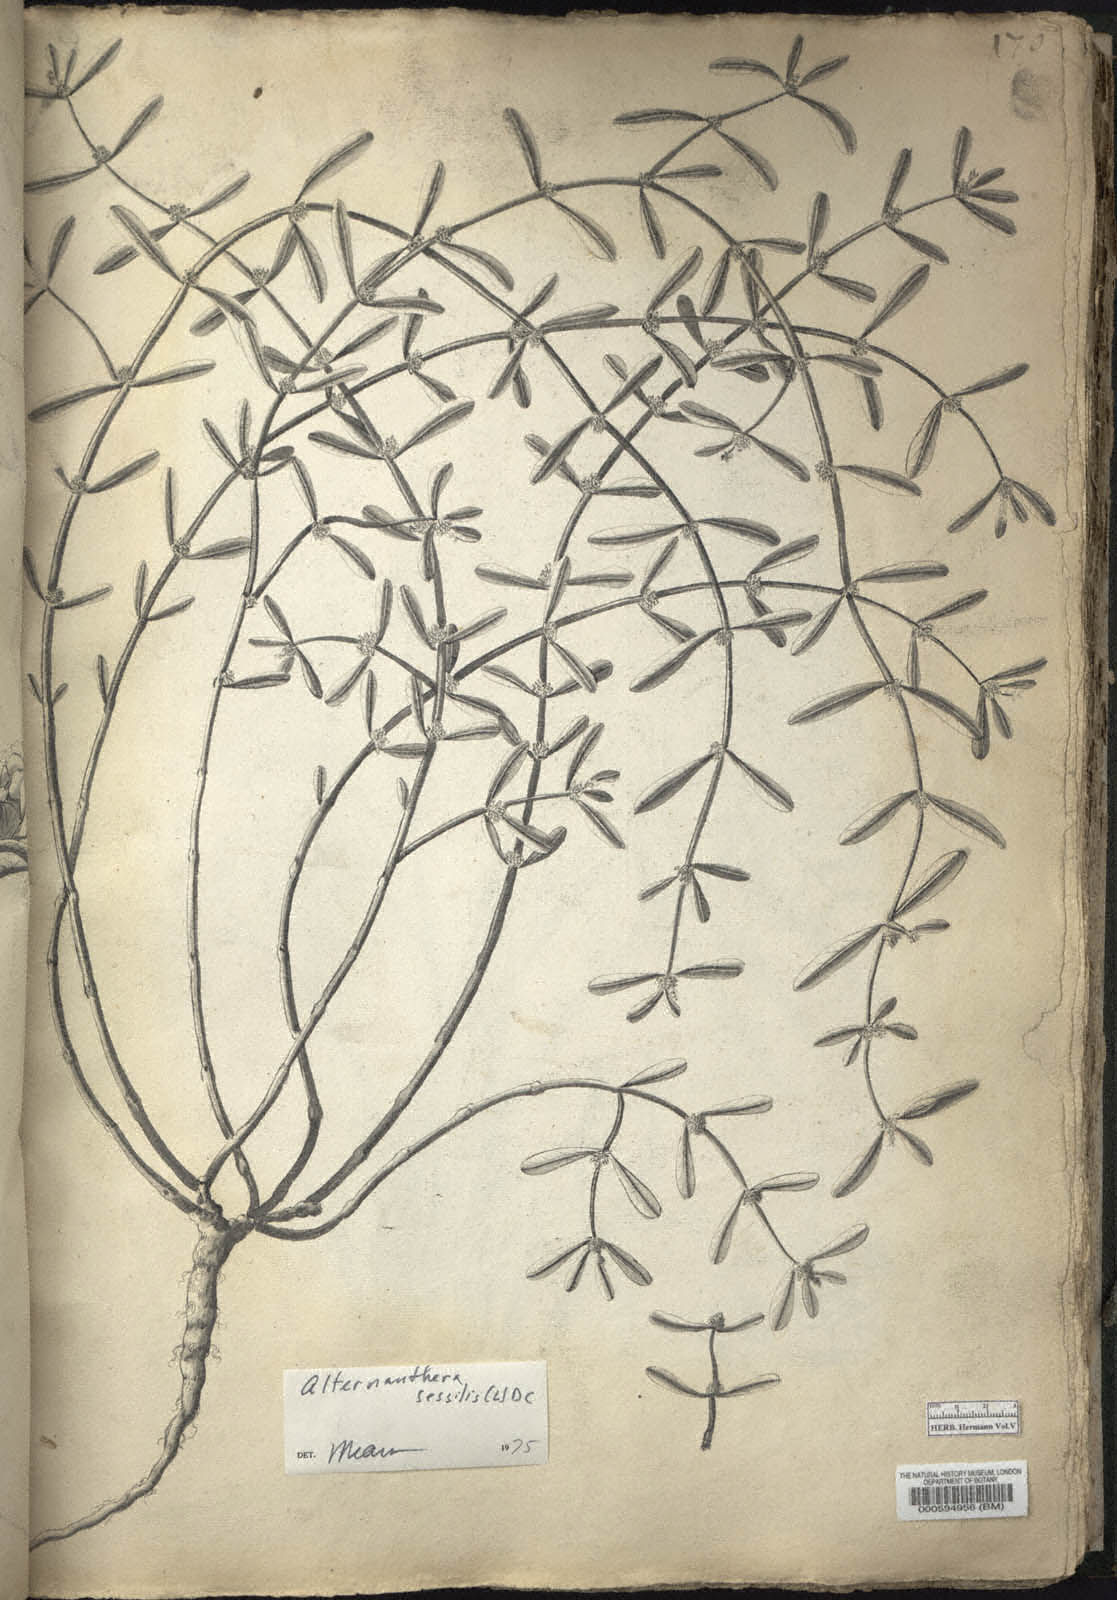 170
Alternanthera
sessilis (L) DC
DET. Mears 1975
HERB. Hermann Vol.V
THE NATURAL HISTORY MUSEUM, LONDON
DEPARTMENT OF BOTANY
000594956 (BM)